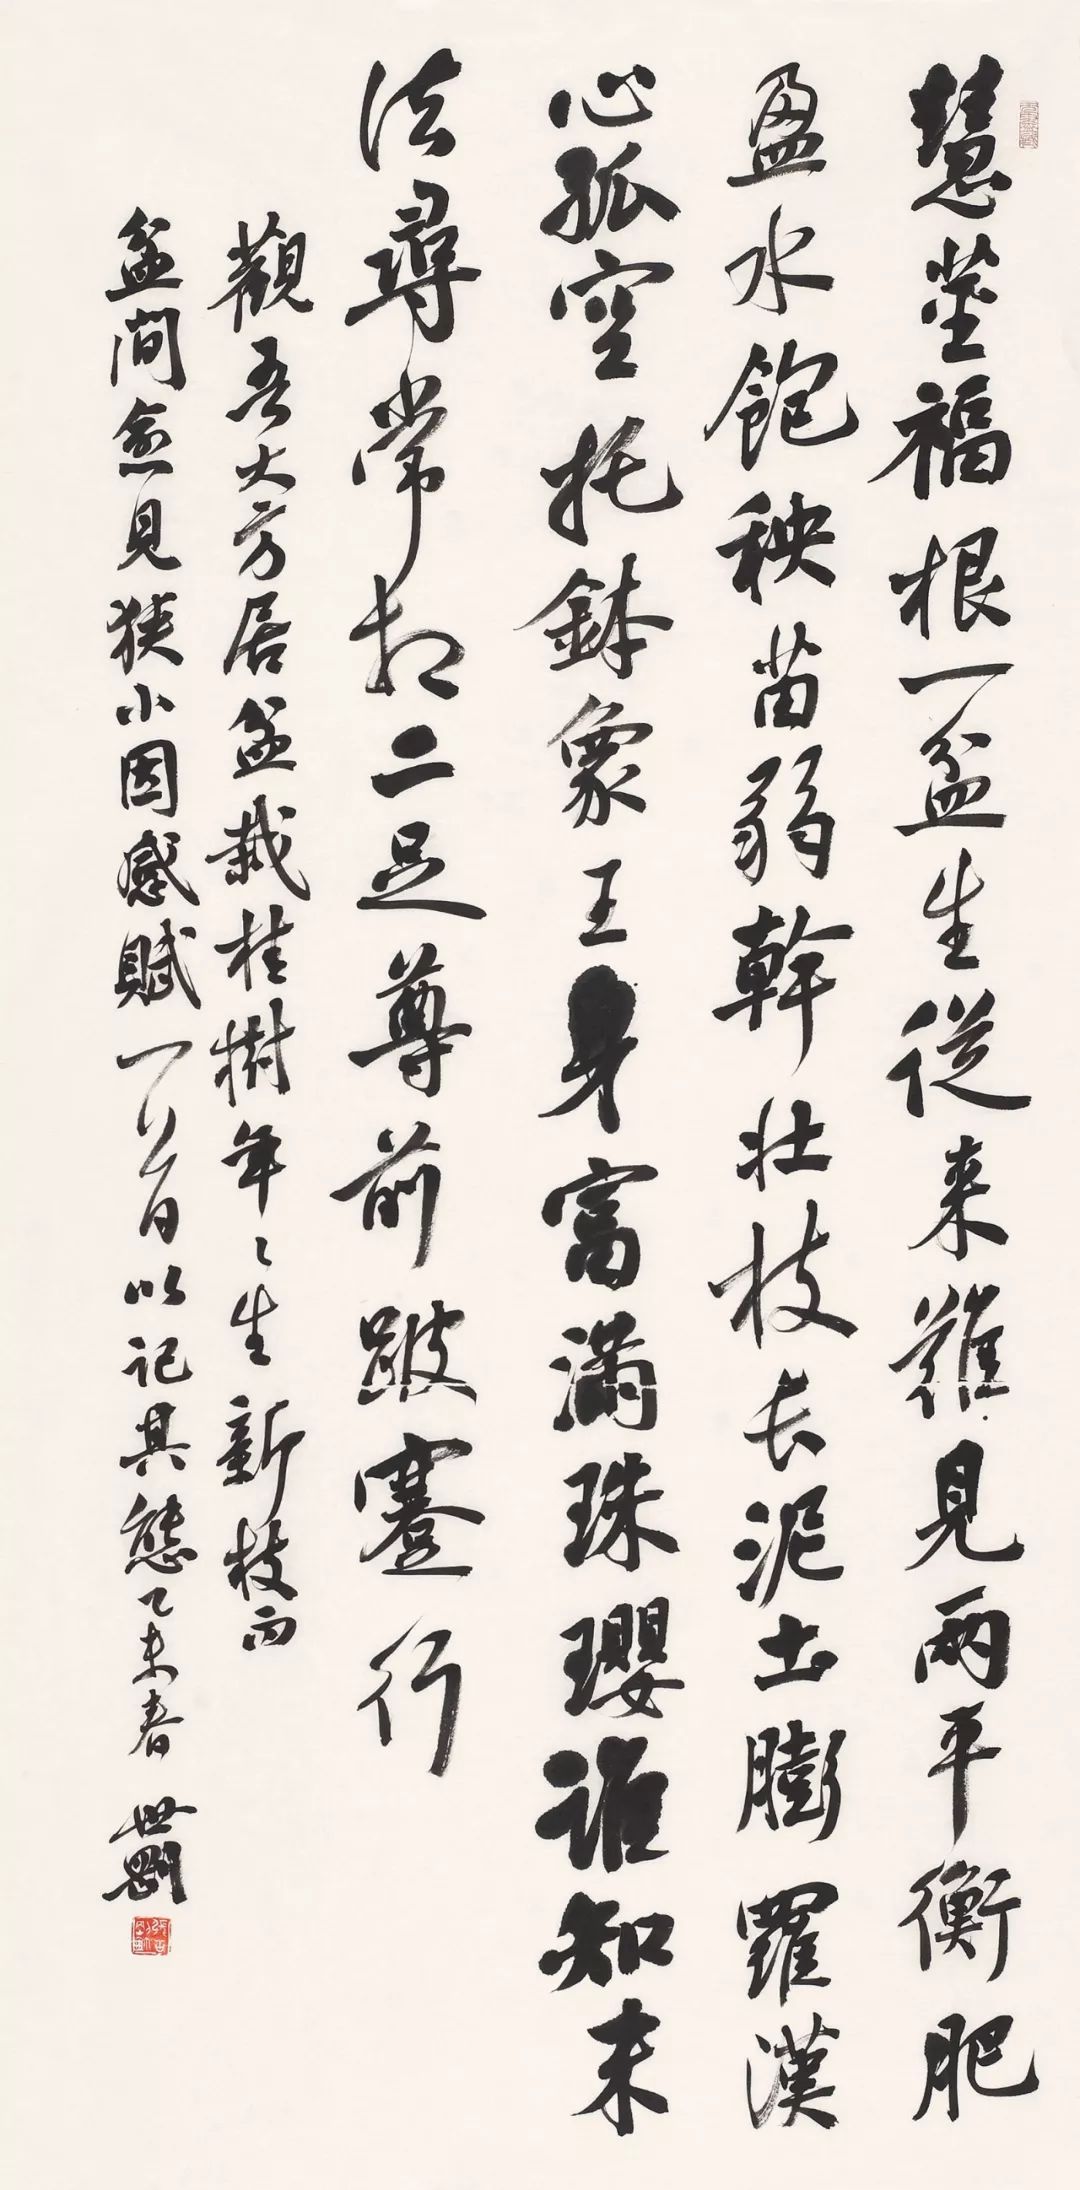 慧莖福根一盆生從来難見兩平衡肥
盈水飽秧苗弱幹壯枝長泥土膨羅漢
心孤空托鉢象王身富滿珠瓔誰知未
法尋常相二足尊前跛蹇行
觀吾大方居盆栽桂樹年〻生新枝而
盆間愈見狹小因感賦一首以記其態乙未春 世剛